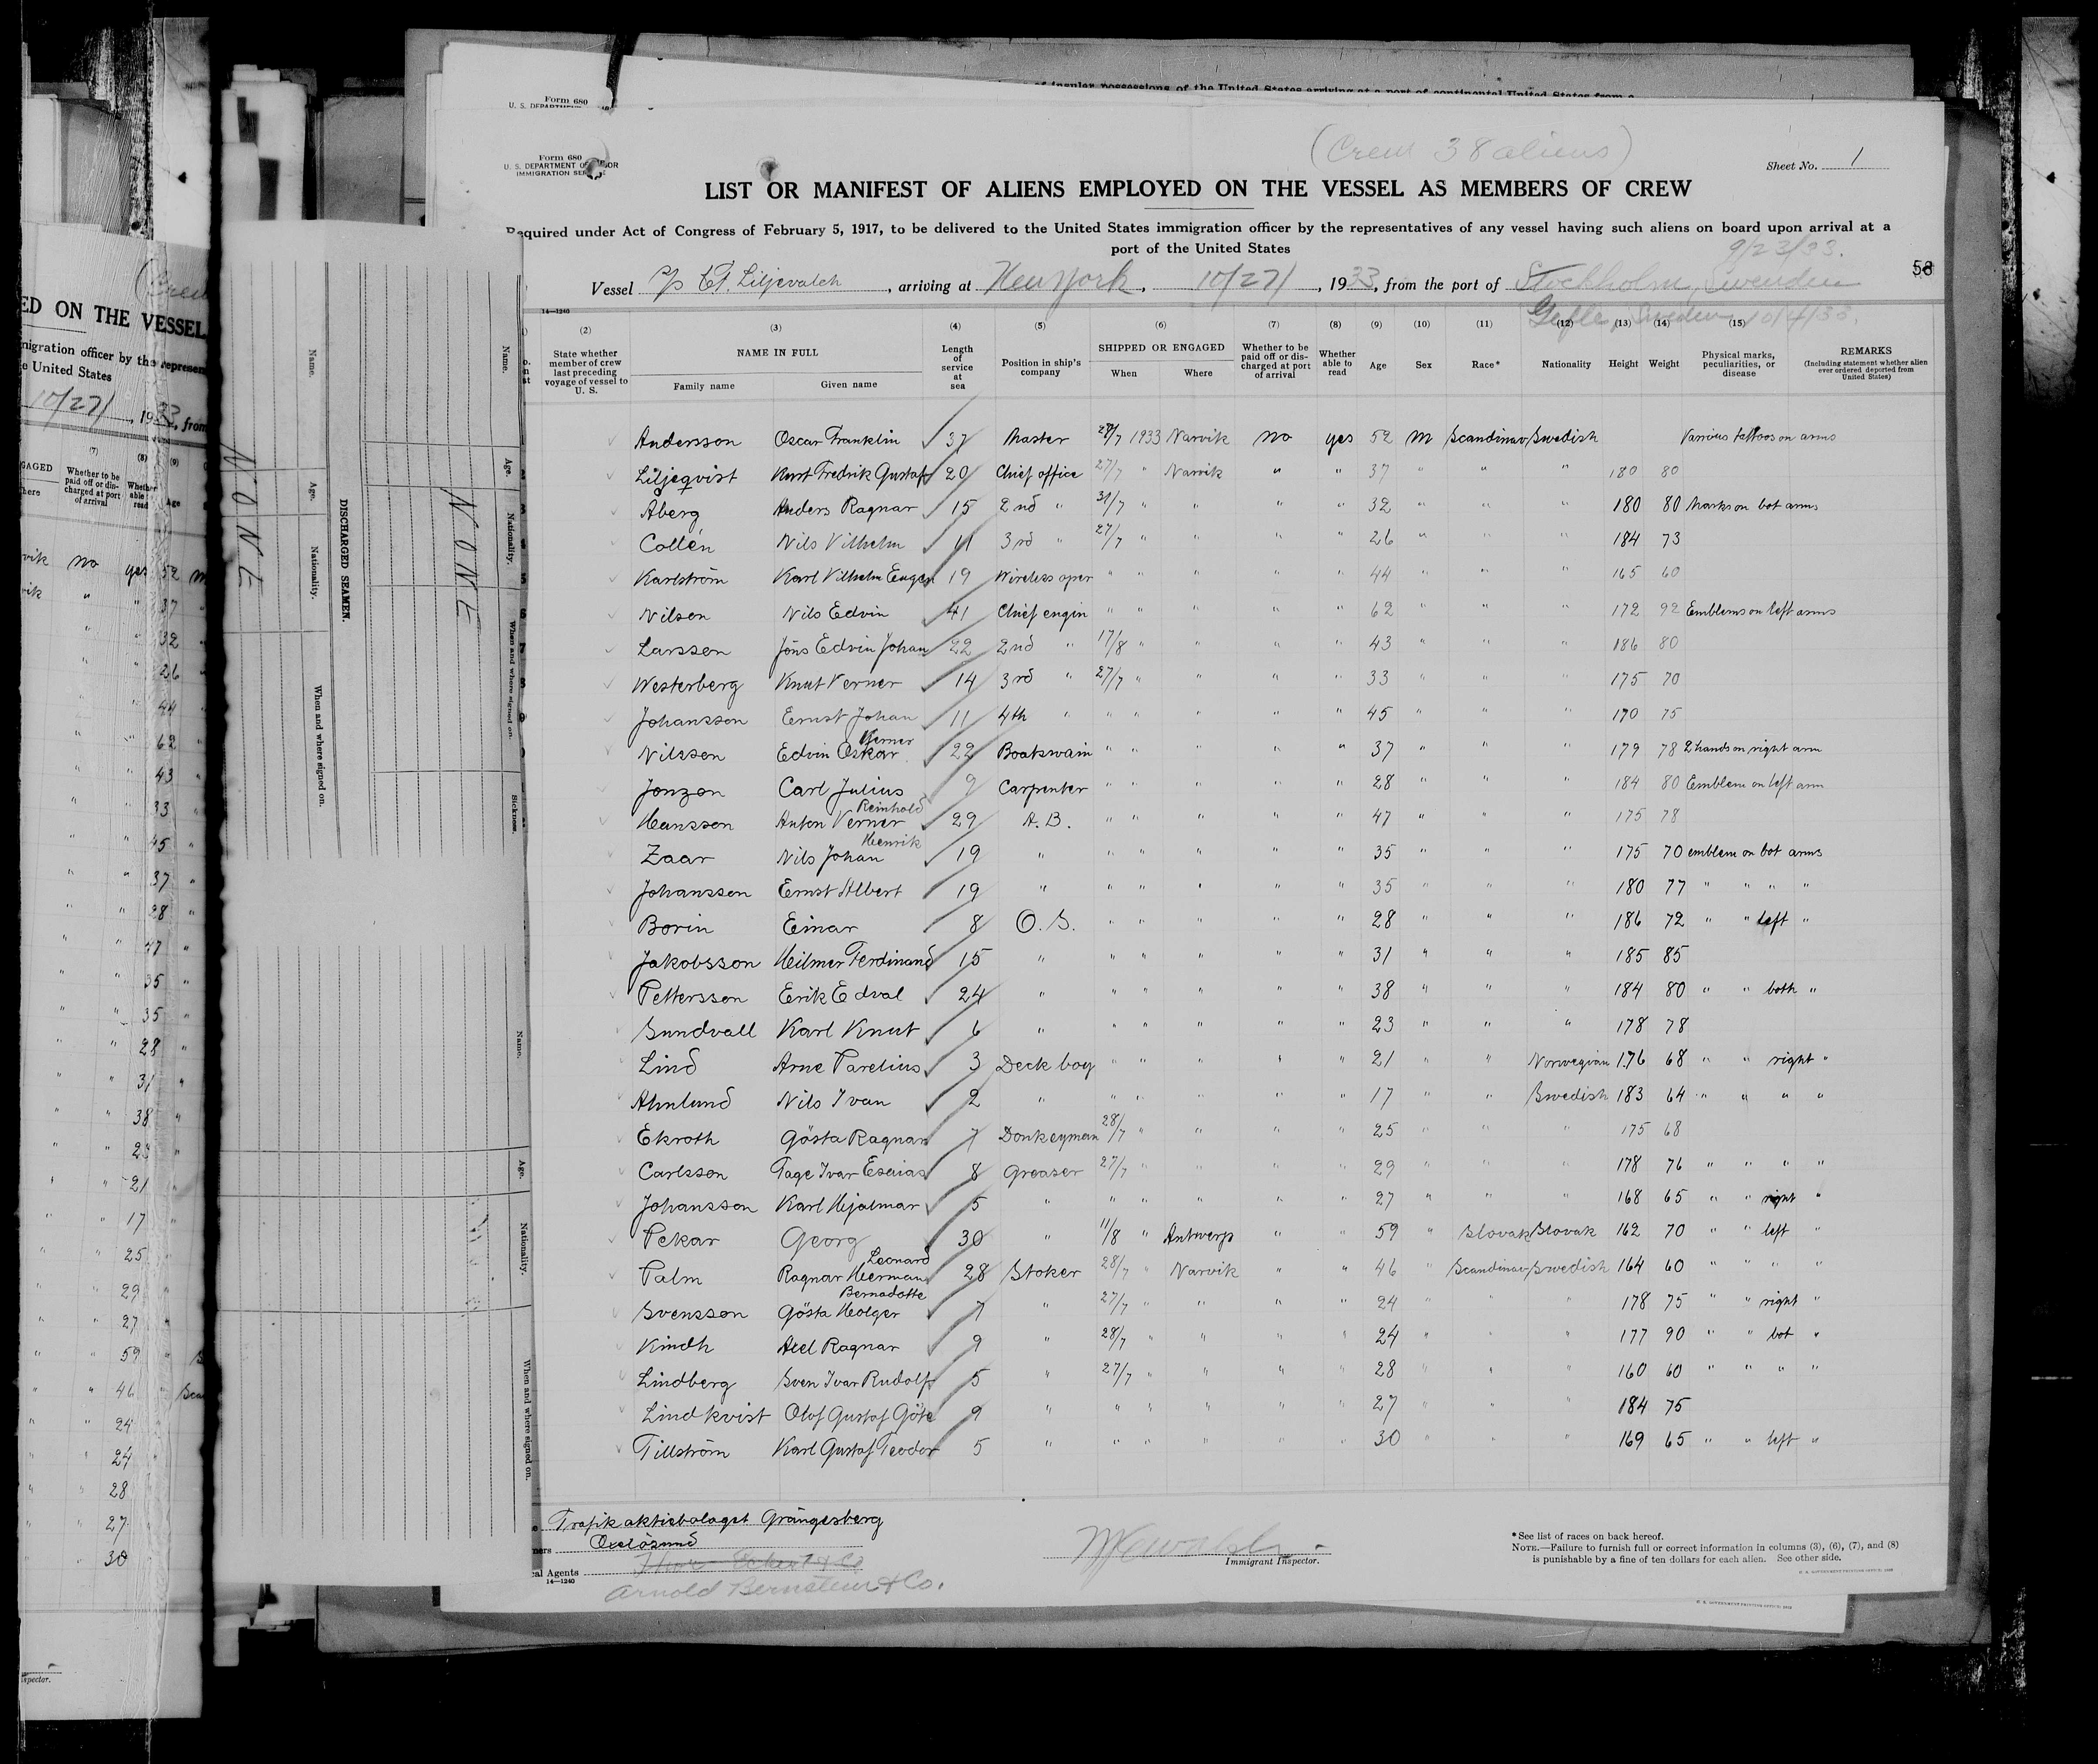 Form 680
U. S. DEPARTMENT
Form 680
U. S. DEPARTMENT OF LABOR
IMMIGRATION SERVICE
(Crew 38 aliens)
Sheet No. 1
LIST OR MANIFEST OF ALIENS EMPLOYED ON THE VESSEL AS MEMBERS OF CREW
Required under Act of Congress of February 5, 1917, to be delivered to the United States immigration officer by the representatives of any vessel having such aliens on board upon arrival at a
port of the United States
9/23/33.
58
Vessel S/S C.F. Liljevalch, arriving at New York, 10/27/, 1933, from the port of Stockholm, Sweuden
Gefle, Sweden 10/4/33.
14—1240
(2) (3) (4) (5) (6) (7) (8) (9) (10) (11) (12) (13) (14) (15)
State whether member of crew last preceding voyage of vessel to U. S. NAME IN FULL Family name Given name Length of service at sea Position in ship's company SHIPPED OR ENGAGED When Where Whether to be paid off or discharged at port of arrival Whether able to read Age Sex Race* Nationality Height Weight Physical marks, peculiarities, or disease REMARKS (Including statement whether alien ever ordered deported from United States)
Andersson Oscar Franklin 37 Master 27/7 1933 Narvik no yes 52 m Scandinav Swedish Various tattoos on arms
Liljeqvist Knut Fredrik Gustaf 20 Chief office 27/7 " Narvik " " 37 " " " 180 80
Åberg Anders Ragnar 15 2nd " 31/7 " " " " 32 " " " 180 80 Marks on bot arms
Collén Nils Vilhelm 11 3rd " 27/7 " " " " 26 " " " 184 73
Karlström Karl Vilhelm Eugen 19 Wireless oper " " " " " 44 " " " 165 60
Nilson Nils Edvin 41 Chief engin " " " " " 62 " " " 172 92 Emblems on left arms
Larsson Jöns Edvin Johan 22 2nd " 17/8 " " " " 43 " " " 186 80
Westerberg Knut Verner 14 3rd " 27/7 " " " " 33 " " " 175 70
Johansson Ernst Johan 11 4th " " " " " " 45 " " " 170 75
Nilsson Edvin Oskar Verner 22 Boatswain " " " " " 37 " " " 179 78 2 hands on right arm
Jonzon Carl Julius 9 Carpenter " " " " " 28 " " " 184 80 Emblem on left arm
Hansson Anton Verner Reinhold 29 A. B. " " " " " 47 " " " 175 78
Zaar Nils Johan Henrik 19 " " " " " " 35 " " " 175 70 emblem on bot arms
Johansson Ernst Albert 19 " " " " " " 35 " " " 180 77 " " " "
Borin Einar 8 O. S. " " " " " 28 " " " 186 72 " " left "
Jakobsson Hilmer Ferdinand 15 " " " " " " 31 " " " 185 85
Pettersson Erik Edval 24 " " " " " " 38 " " " 184 80 " " both "
Sundvall Karl Knut 6 " " " " " " 23 " " " 178 78
Lind Arne Parelius 3 Deck boy " " " " " 21 " " Norwegian 176 68 " " right "
Ahnlund Nils Ivan 2 " " " " " " 17 " " Swedish 183 64 " " " "
Ekroth Gösta Ragnar 7 Donkeyman 28/7 " " " " 25 " " " 175 68
Carlsson Tage Ivar Esaias 8 Greaser 27/7 " " " " 29 " " " 178 76 " " " "
Johansson Karl Hjalmar 5 " " " " " " 27 " " " 168 65 " " right "
Pekar Georg 30 " 11/8 " Antwerp " " 59 " Slovak Slovak 162 70 " " left "
Palm Ragnar Herman Leonard 28 Stoker 28/7 " Narvik " " 46 " Scandinav Swedish 164 60 " " " "
Svensson Gösta Holger Bernadotte 7 " 27/7 " " " " 24 " " " 178 75 " " right "
Kindh Axel Ragnar 9 " 28/7 " " " " 24 " " " 177 90 " " bot "
Lindberg Sven Ivar Rudolf 5 " 27/7 " " " " 28 " " " 160 60 " " " "
Lindkvist Olof Gustaf Göte 9 " " " " " " 27 " " " 184 75
Tillström Karl Gustaf Teodor 5 " " " " " " 30 " " " 169 65 " " left "
Trafikaktiebolaget Grängesberg
Oxelösund
Arnold Bernstein & Co.
14—1240
Immigrant Inspector.
*See list of races on back hereof.
NOTE.—Failure to furnish full or correct information in columns (3), (6), (7), and (8)
is punishable by a fine of ten dollars for each alien. See other side.
DISCHARGED SEAMEN.
Name. Age. Nationality. When and where signed on.
NONE
Name. Age. Nationality. When and where signed on. Sickness.
NONE
Name. Age. Nationality. When and where signed on.
ED ON THE VESSEL
migration officer by the represen
e United States
10/27/, 1933, from